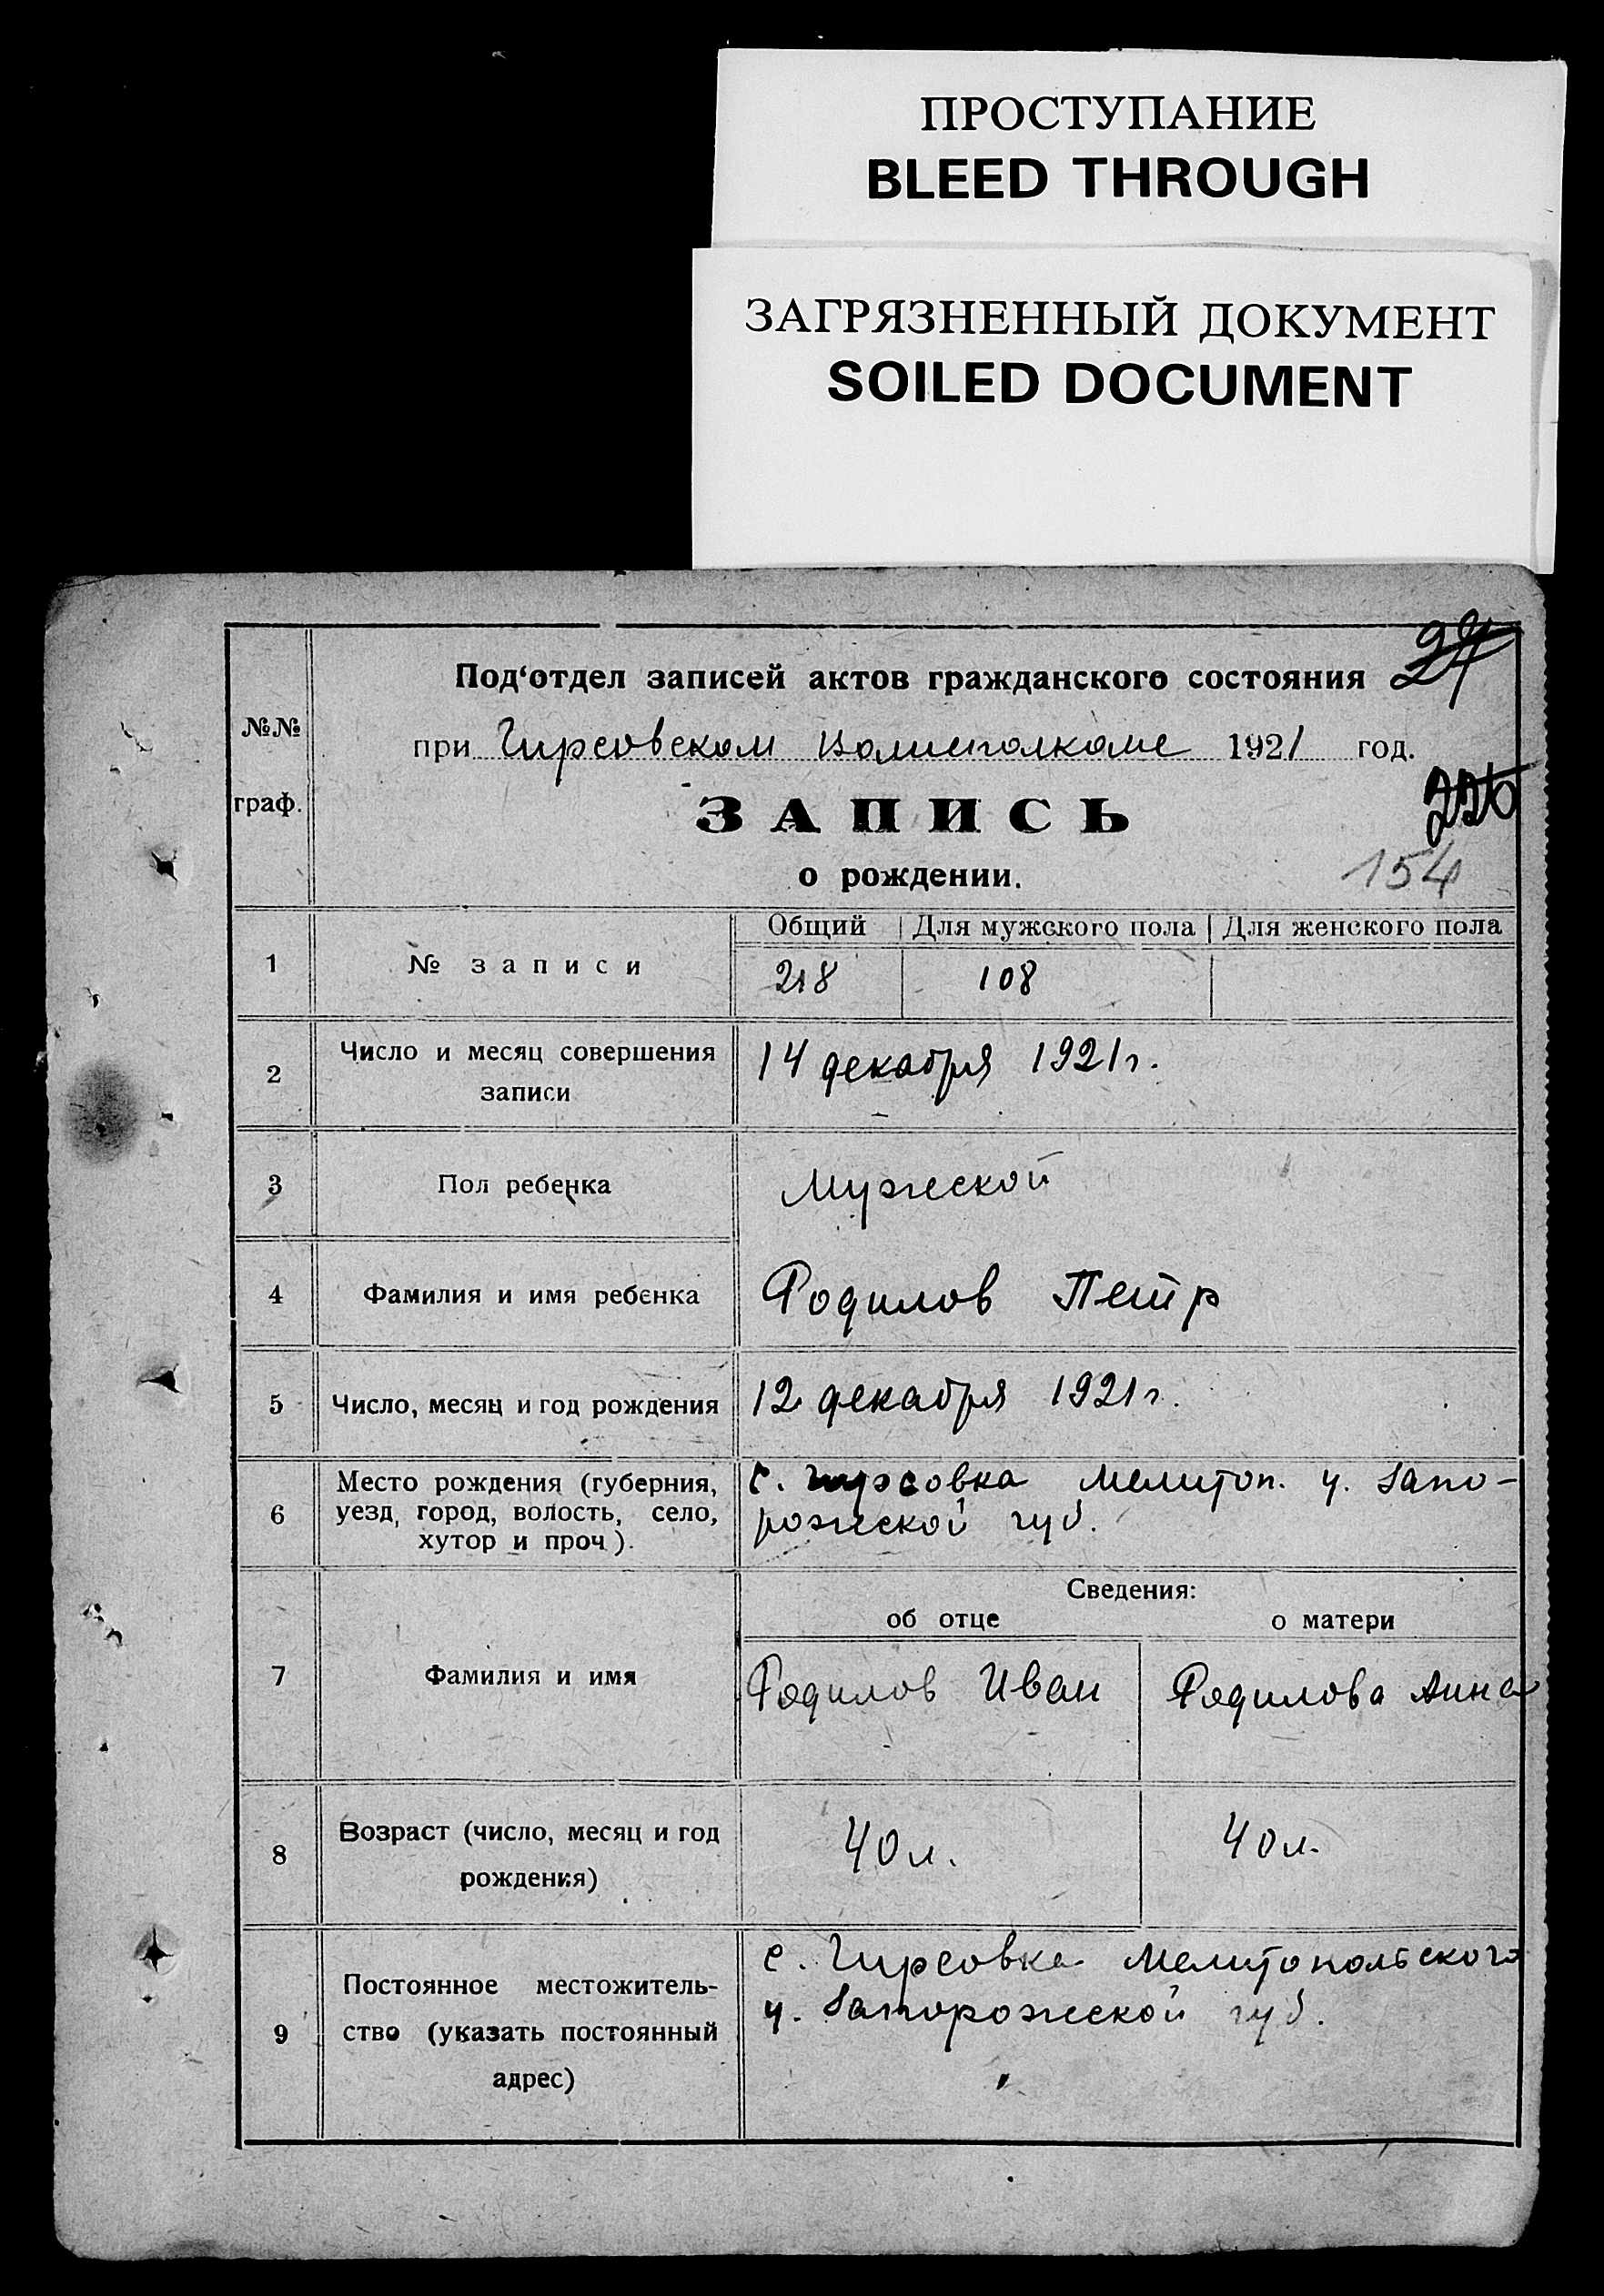 ПРОСТУПАНИЕ
BLEED THROUGH
ЗАГРЯЗНЕННЫЙ ДОКУМЕНТ
SOILED DOCUMENT
№№
граф.
Под‘отдел записей актов гражданского состояния
при Гирсовском Волисполкоме 1921 год.
ЗАПИСЬ
о рождении.
154
Общий Для мужского пола Для женского пола
1 № записи 218 108
2 Число и месяц совершения
записи
14 декабря 1921 г.
3 Пол ребенка Мужской
4 Фамилия и имя ребенка Родилов Петр
5 Число, месяц и год рождения 12 декабря 1921 г.
6 Место рождения (губерния,
уезд, город, волость, село,
хутор и проч.).
с. Гирсовка Мелитоп. у. Запо-
рожской губ.
Сведения:
об отце о матери
7 Фамилия и имя Родилов Иван Родилова Анна
8 Возраст (число, месяц и год
рождения)
40 л. 40 л.
9 Постоянное местожитель-
ство (указать постоянный
адрес)
с. Гирсовка Мелитопольского
у. Запорожской губ.
"